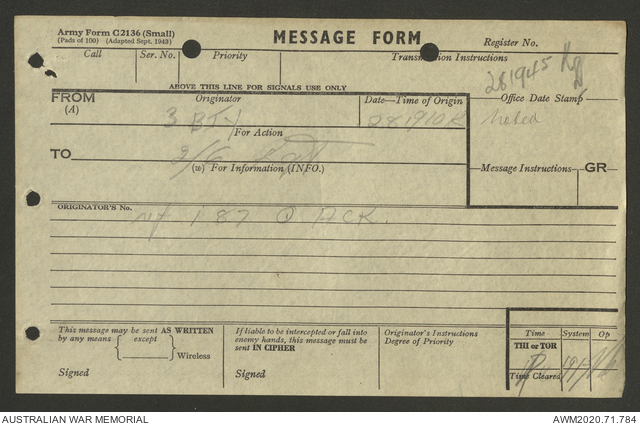 Army Form C2136 (Small)
(Pads of 100) (Adapted Sept. 1943)
MESSAGE FORM
Register No.
Call
Ser. No.
Priority
Transmission Instructions
281945
ABOVE THIS LINE FOR SIGNALS USE ONLY
FROM
(A)
Originator
Date—Time of Origin
Office Date Stamp
3 BTY
281910K
For Action
TO
2/6 Regt
(w) For Information (INFO.)
Message Instructions
GR
ORIGINATOR'S No.
187 ACK.
This message may be sent AS WRITTEN
by any means
except
Wireless
Signed
If liable to be intercepted or fall into
enemy hands, this message must be
sent IN CIPHER
Signed
Originator's Instructions
Degree of Priority
Time
System
Op
THI or TOR
Time Cleared
AUSTRALIAN WAR MEMORIAL
AWM2020.71.784